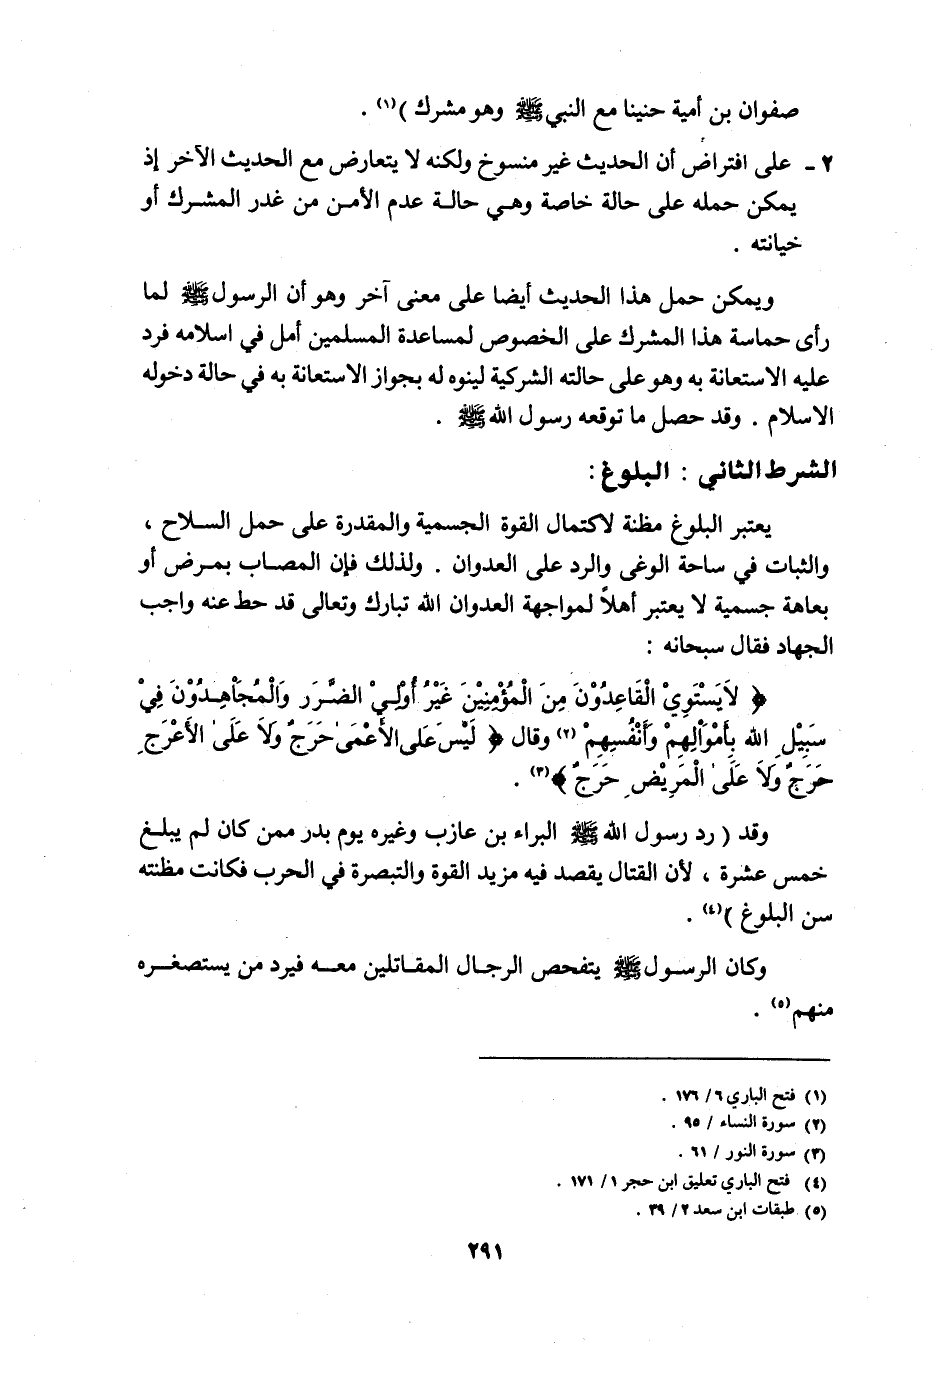 صفوان بن أمية حنينا مع النبي ﷺ وهو مشرك )(١) .
٢ - على افتراض أن الحديث غير منسوخ ولكنه لا يتعارض مع الحديث الآخر إذ
يمكن حمله على حالة خاصة وهي حالة عدم الأمن من غدر المشرك أو
خيانته .
ويمكن حمل هذا الحديث أيضا على معنى آخر وهو أن الرسول ﷺ لما
رأى حماسة هذا المشرك على الخصوص لمساعدة المسلمين أمل في اسلامه فرد
عليه الاستعانة به وهو على حالته الشركية لينوه له بجواز الاستعانة به في حالة دخوله
الاسلام . وقد حصل ما توقعه رسول الله ﷺ .
الشرط الثاني : البلوغ :
يعتبر البلوغ مظنة لاكتمال القوة الجسمية والمقدرة على حمل السلاح ،
والثبات في ساحة الوغى والرد على العدوان . ولذلك فإن المصاب بمرض أو
بعاهة جسمية لا يعتبر أهلاً لمواجهة العدوان الله تبارك وتعالى قد حط عنه واجب
الجهاد فقال سبحانه :
﴿ لاَيَسْتَوِيْ الْقَاعِدُوْنَ مِنَ الْمُؤْمِنِيْنَ غَيْرُ أُوْلِيْ الضَّرَرِ وَالْمُجَاْهِدُوْنَ فِيْ
سَبِيْلِ الله بِأَمْوَاْلِهِمْ وَأَنْفُسِهِمْ (٢) وقال ﴿ لَيْسَ عَلَى الأَعْمَىٰ حَرَجٌ وَلاَ عَلَىٰ الأَعْرَجِ
حَرَجٌ وَلاَ عَلَىٰ الْمَرِيْضِ حَرَجٌ ﴾(٣) .
وقد ( رد رسول الله ﷺ البراء بن عازب وغيره يوم بدر ممن كان لم يبلغ
خمس عشرة ، لأن القتال يقصد فيه مزيد القوة والتبصرة في الحرب فكانت مظنته
سن البلوغ )(٤) .
وكان الرسول ﷺ يتفحص الرجال المقاتلين معه فيرد من يستصغره
منهم(٥) .
(١) فتح الباري ٦ / ١٧٦ .
(٢) سورة النساء / ٩٥ .
(٣) سورة النور / ٦١ .
(٤) فتح الباري تعليق ابن حجر ١ / ١٧١ .
(٥) طبقات ابن سعد ٢ / ٣٩ .
٢٩١